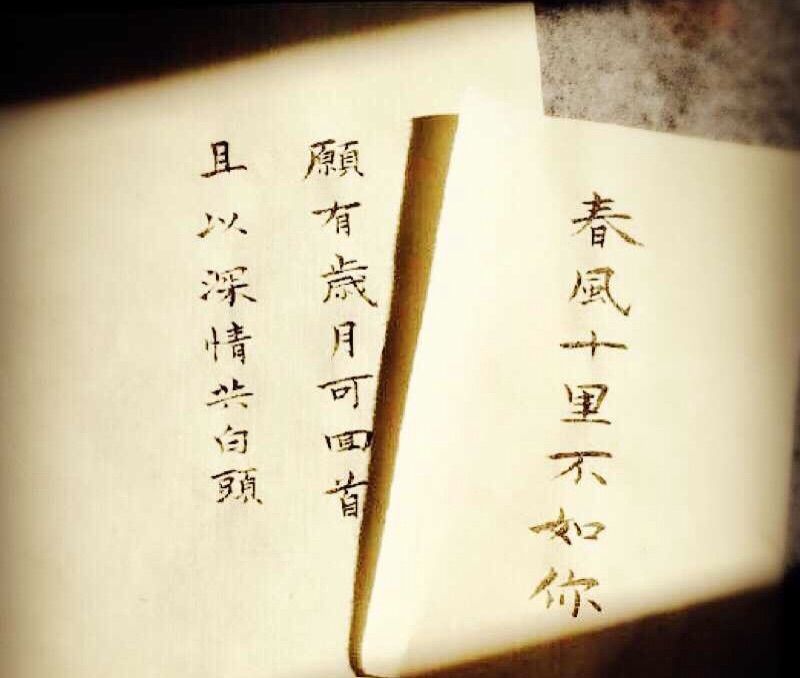 春風十里不如你
願有歲月可回首
且以深情共白頭